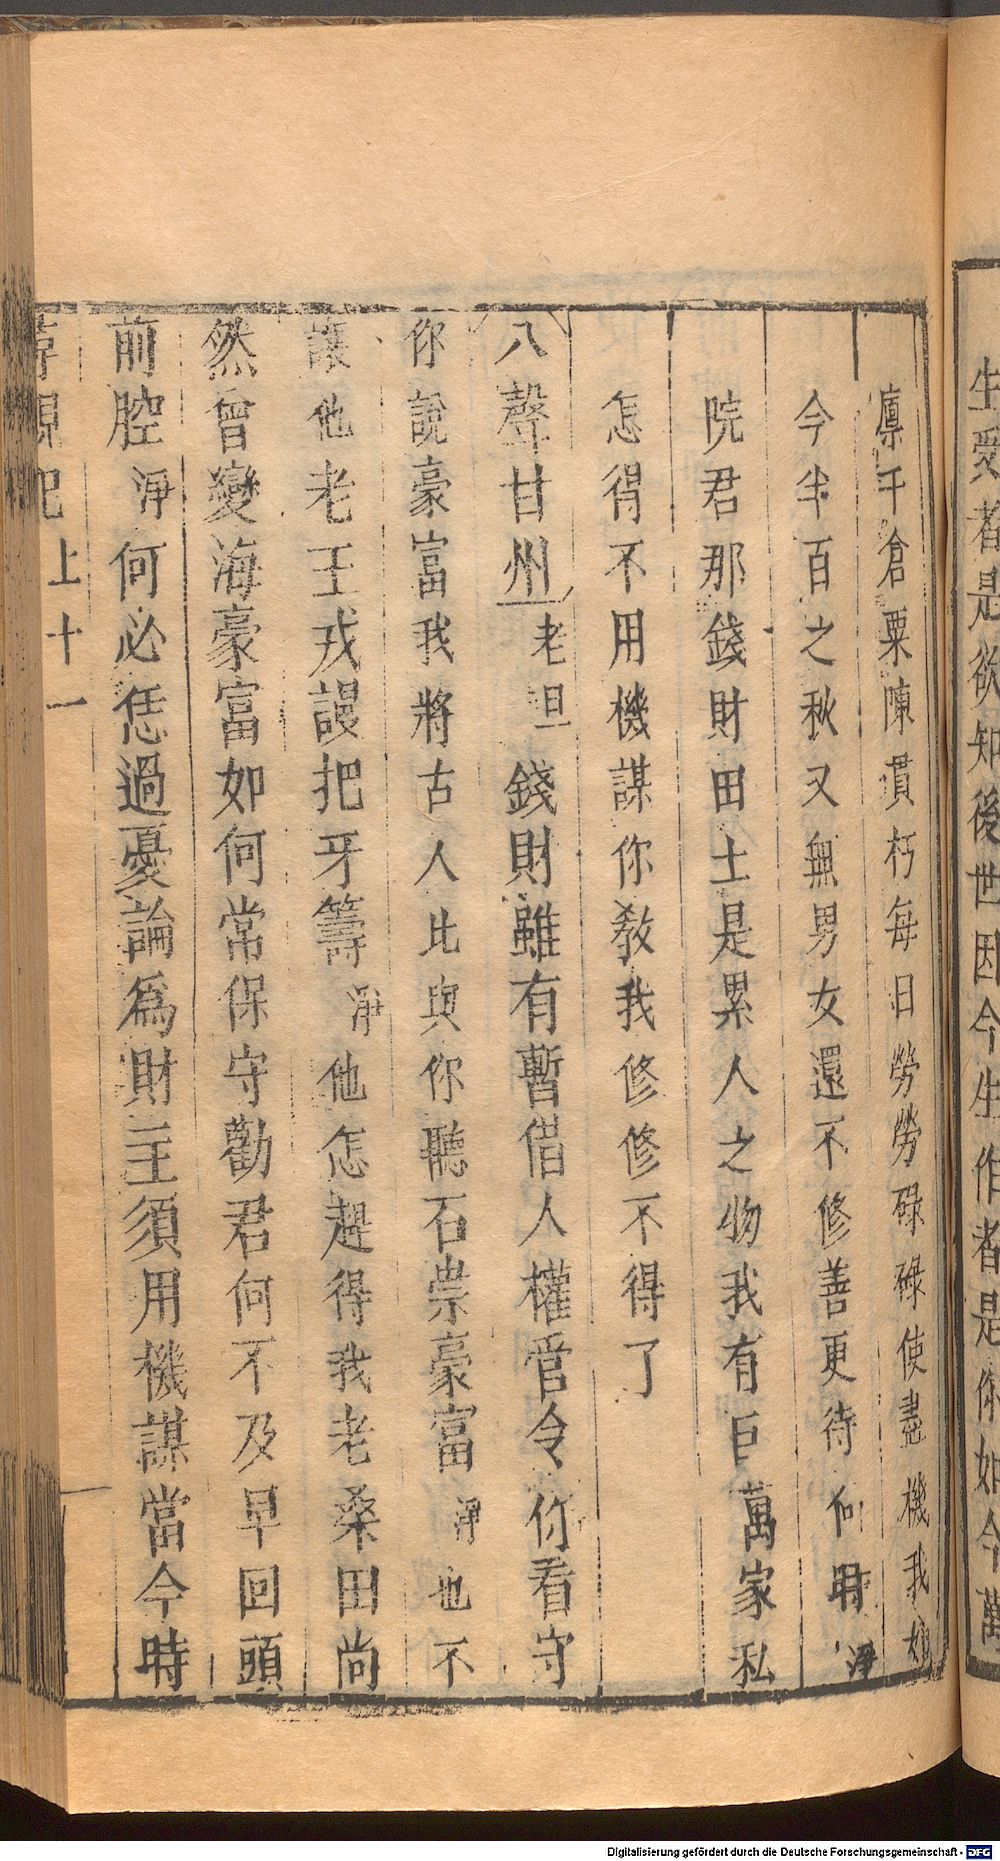 生受者是欲知後世因今生作者是你如今萬
廪千倉粟陳貫朽每日勞勞碌碌使盡機我如
今半百之秋又無男女還不修善更待何時淨
院君那錢財田土是累人之物我有巨萬家私
怎得不用機謀你教我修修不得了
八聲甘州老旦錢財雖有暫借人權管令你看守
你說豪富我將古人比與你聽石崇豪富淨也不
讓他老王戎謾把牙籌淨他怎趕得我老桑田尚
然曾變海豪富如何常保守勸君何不及早回頭
前腔淨何必恁過憂論為財主須用機謀當今時
尋親記 上十一
Digitalisierung gefördert durch die Deutsche Forschungsgemeinschaft - DFG